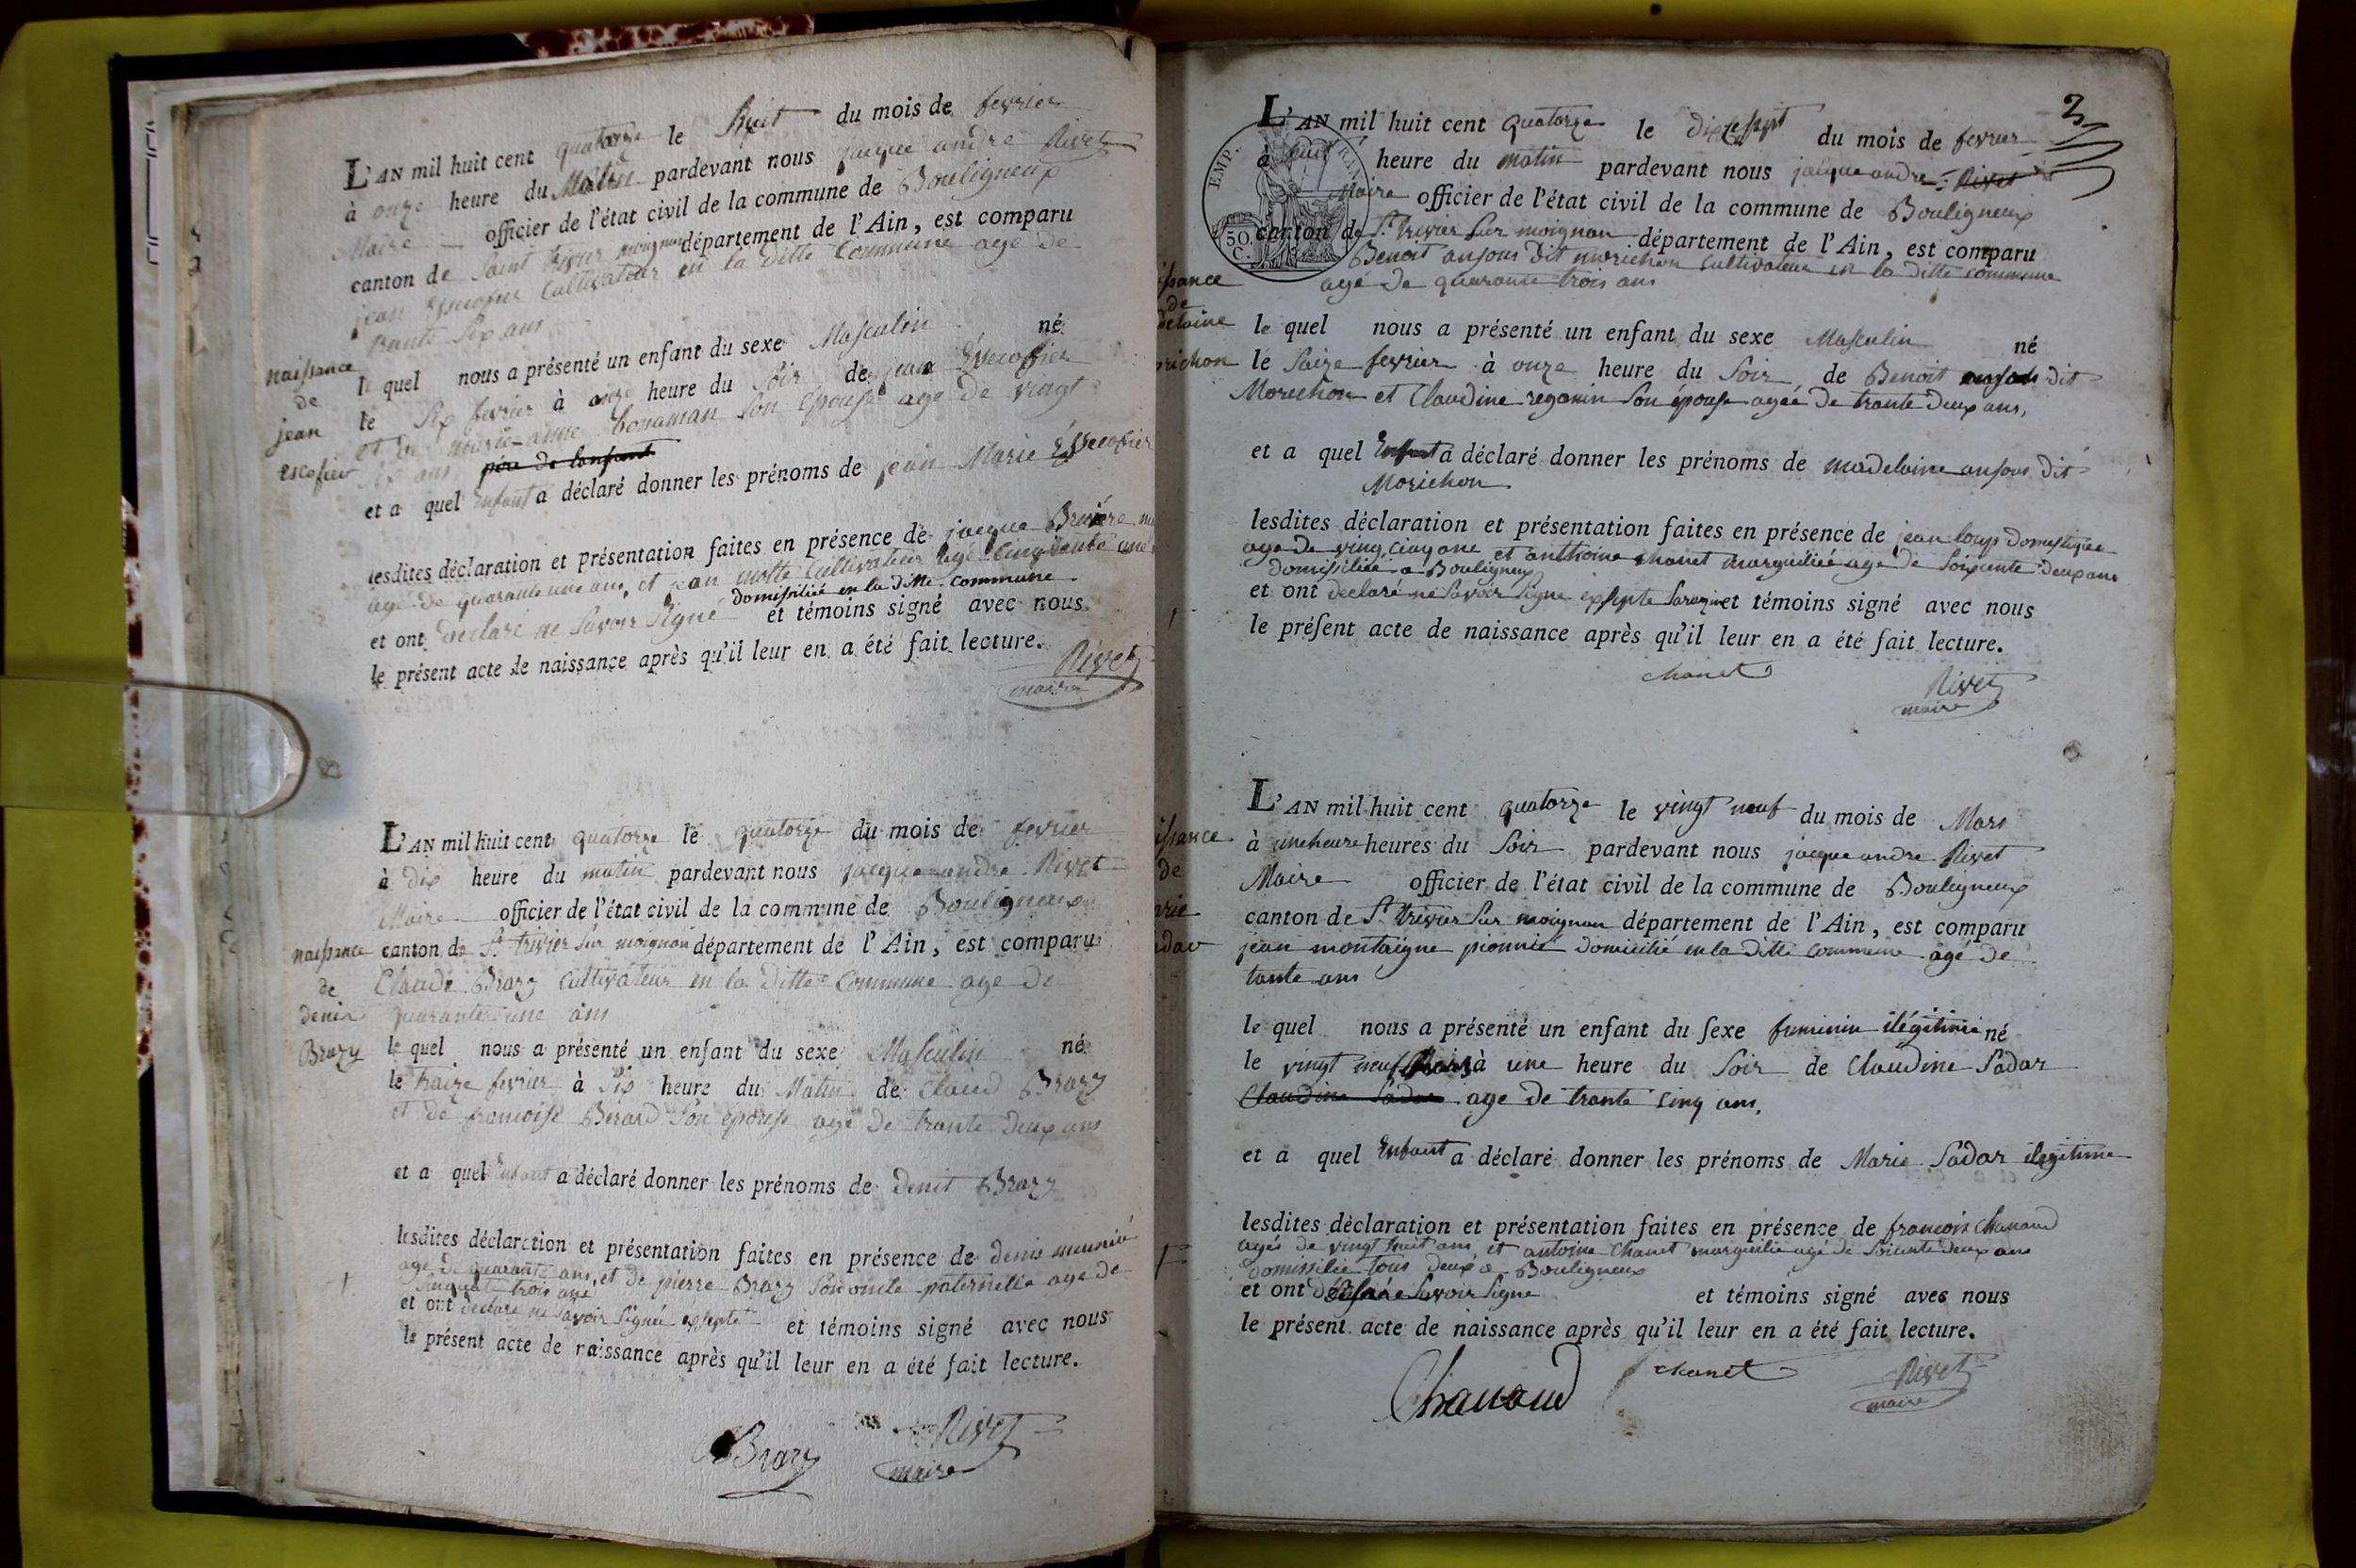 L'AN mil huit cent quatorze le huit du mois de fevrier
à onze heure du Matin pardevant nous jacque andre Rivet
Maire officier de l'état civil de la commune de Bouligneux
canton de Saint trivier sur moignan département de l'Ain, est comparu
jean Essecofier Cultivateur en la ditte Commune age de
trante Six ans
naissance
de
jean
escofier
le quel nous a présenté un enfant du sexe Masculin né
le Six fevrier à onze heure du Soir de jean Essecofier
et de marie-anne bonaman son épouse age de vingt
Six ans père de lenfant
et a quel Enfant a déclaré donner les prénoms de jean Marie Essecofier
lesdites déclaration et présentation faites en présence de jacque Bruiere
agé de quarante une ans, et jean motte Cultivateur agé Cinquante une
domissilié en la ditte commune
et ont declaré ne Savoir Signé et témoins signé avec nous
le présent acte de naissance après qu'il leur en a été fait lecture.
Rivet
maire
L'AN mil huit cent quatorze le quatorze du mois de fevrier
à dix heure du matin pardevant nous jacque andre Rivet
Maire officier de l'état civil de la commune de Bouligneux
canton de St trivier Sur moignan département de l'Ain, est comparu
Claude Brazy Cultivateur en la ditte Commune age de
quarante une ans
naissance
de
denis
Brazy
le quel nous a présenté un enfant du sexe Masculin né
le traize fevrier à Six heure du Matin de Claud Brazy
et de francoise Bérard Son epouse agé de trante deux ans
et a quel Enfant a déclaré donner les prénoms de denit Brazy
lesdites déclaration et présentation faites en présence de denis meunié
age de quarante ans, et de pierre Brazy Son oncle paternelle age de
Cinquante trois ans
et ont declaré ne Savoir Signé exsepté et témoins signé avec nous
le présent acte de naissance après qu'il leur en a été fait lecture.
Brazy
Rivet
maire
2
L'AN mil huit cent quatorze le dixesept du mois de fevrier
à huit heure du matin pardevant nous jacque andre Rivet
Maire officier de l'état civil de la commune de Bouligneux
canton de St trivier Sur moignan département de l'Ain, est comparu
Benoit anjous Dit morichon Cultivateur en la ditte commune
agé de quarante trois ans
EMP. FRAN.
50.
C.
issance
de
delaine
richon
le quel nous a présenté un enfant du sexe Masculin né
le Saize fevrier à onze heure du Soir de Benoit anjous dit
Morichon et Claudine regonin Son épouse agée de trante deux ans,
et a quel Enfant a déclaré donner les prénoms de madelaine anjous dit
Morichon
lesdites déclaration et présentation faites en présence de jean loup domestique
age de vingt cinq ans et anthoine chanet marguilié age de Soixente deux ans
domissiliée a Bouligneux
et ont declaré ne Savoir Signe exsepte et témoins signé avec nous
le présent acte de naissance après qu'il leur en a été fait lecture.
chanet
Rivet
maire
L'AN mil huit cent quatorze le vingt neuf du mois de Mars
à une heure heures du Soir pardevant nous jacque andre Rivet
Maire officier de l'état civil de la commune de Bouligneux
canton de St trivier Sur moignan département de l'Ain, est comparu
jean montaigne pionnié domicilié en la ditte commune agé de
tante ans
issance
de
arie
adar
le quel nous a présenté un enfant du sexe feminin ilégitime né
le vingt neuf Mars à une heure du Soir de Claudine Sadar
Claudine Sadar age de trante Cinq ans,
et a quel Enfant a déclaré donner les prénoms de Marie Sadar ilegitime
lesdites déclaration et présentation faites en présence de francois Chanaud
agés de vingt huit ans et antoine Chanet marguilie age de Soisente deux ans
domissilié tous deux a Bouligneux
et ont déclaré Savoir Signe et témoins signé avec nous
le présent acte de naissance après qu'il leur en a été fait lecture.
Chanaud
chanet
Rivet
maire